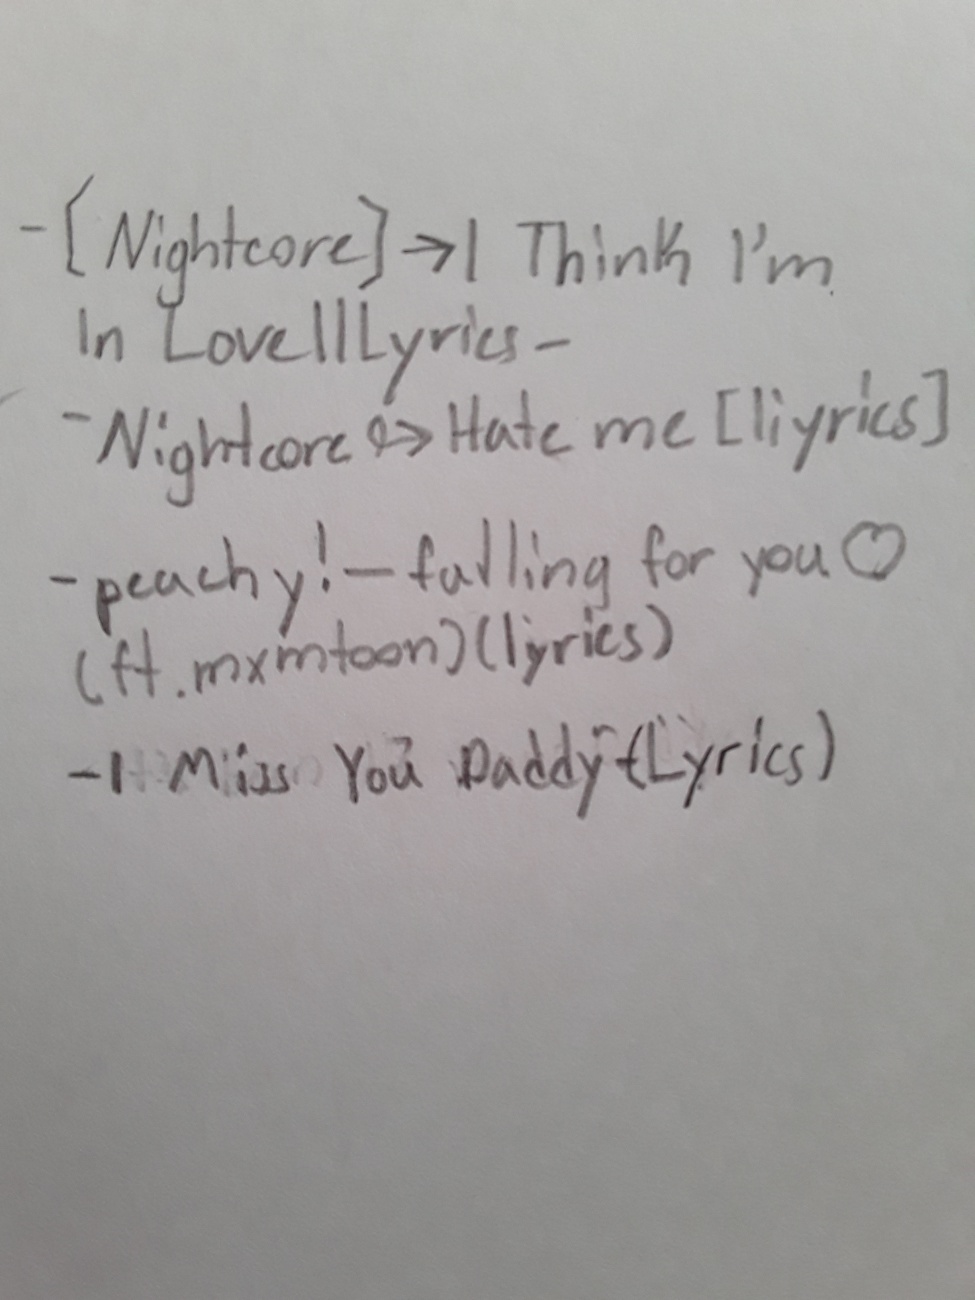 -[Nightcore]→I Think I'm
In Love||Lyrics-
-Nightcore ↪> Hate me [liyrics]
-peachy!-falling for you♡
(ft.mxmtoon)(lyrics)
-I Miss You Daddy-(Lyrics)